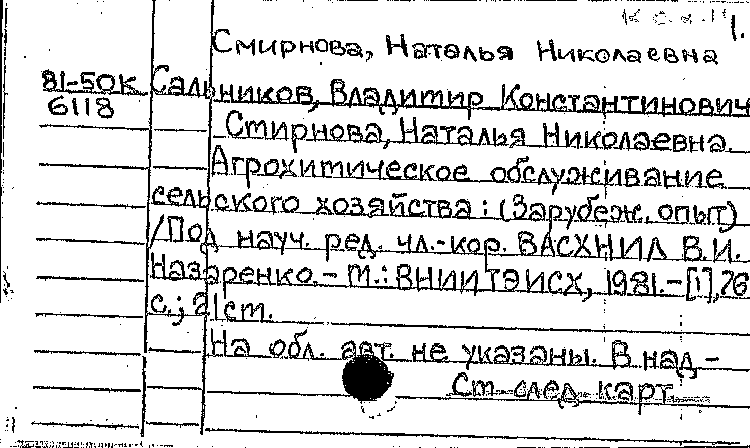 1.
Смирнова, Наталья Николаевна
81-50К Сальников, Владимир Константинович
6118 Смирнова, Наталья Николаевна.
Агрохимическое обслуживание
сельского хозяйства: (Зарубеж. опыт)
/Под науч. ред. чл.-кор. ВАСХНИЛ В.И.
Назаренко.- М.: ВНИИТЭИСХ, 1981.-[1],76
с.; 21см.
На обл. авт. не указаны. В над-
См след. карт.